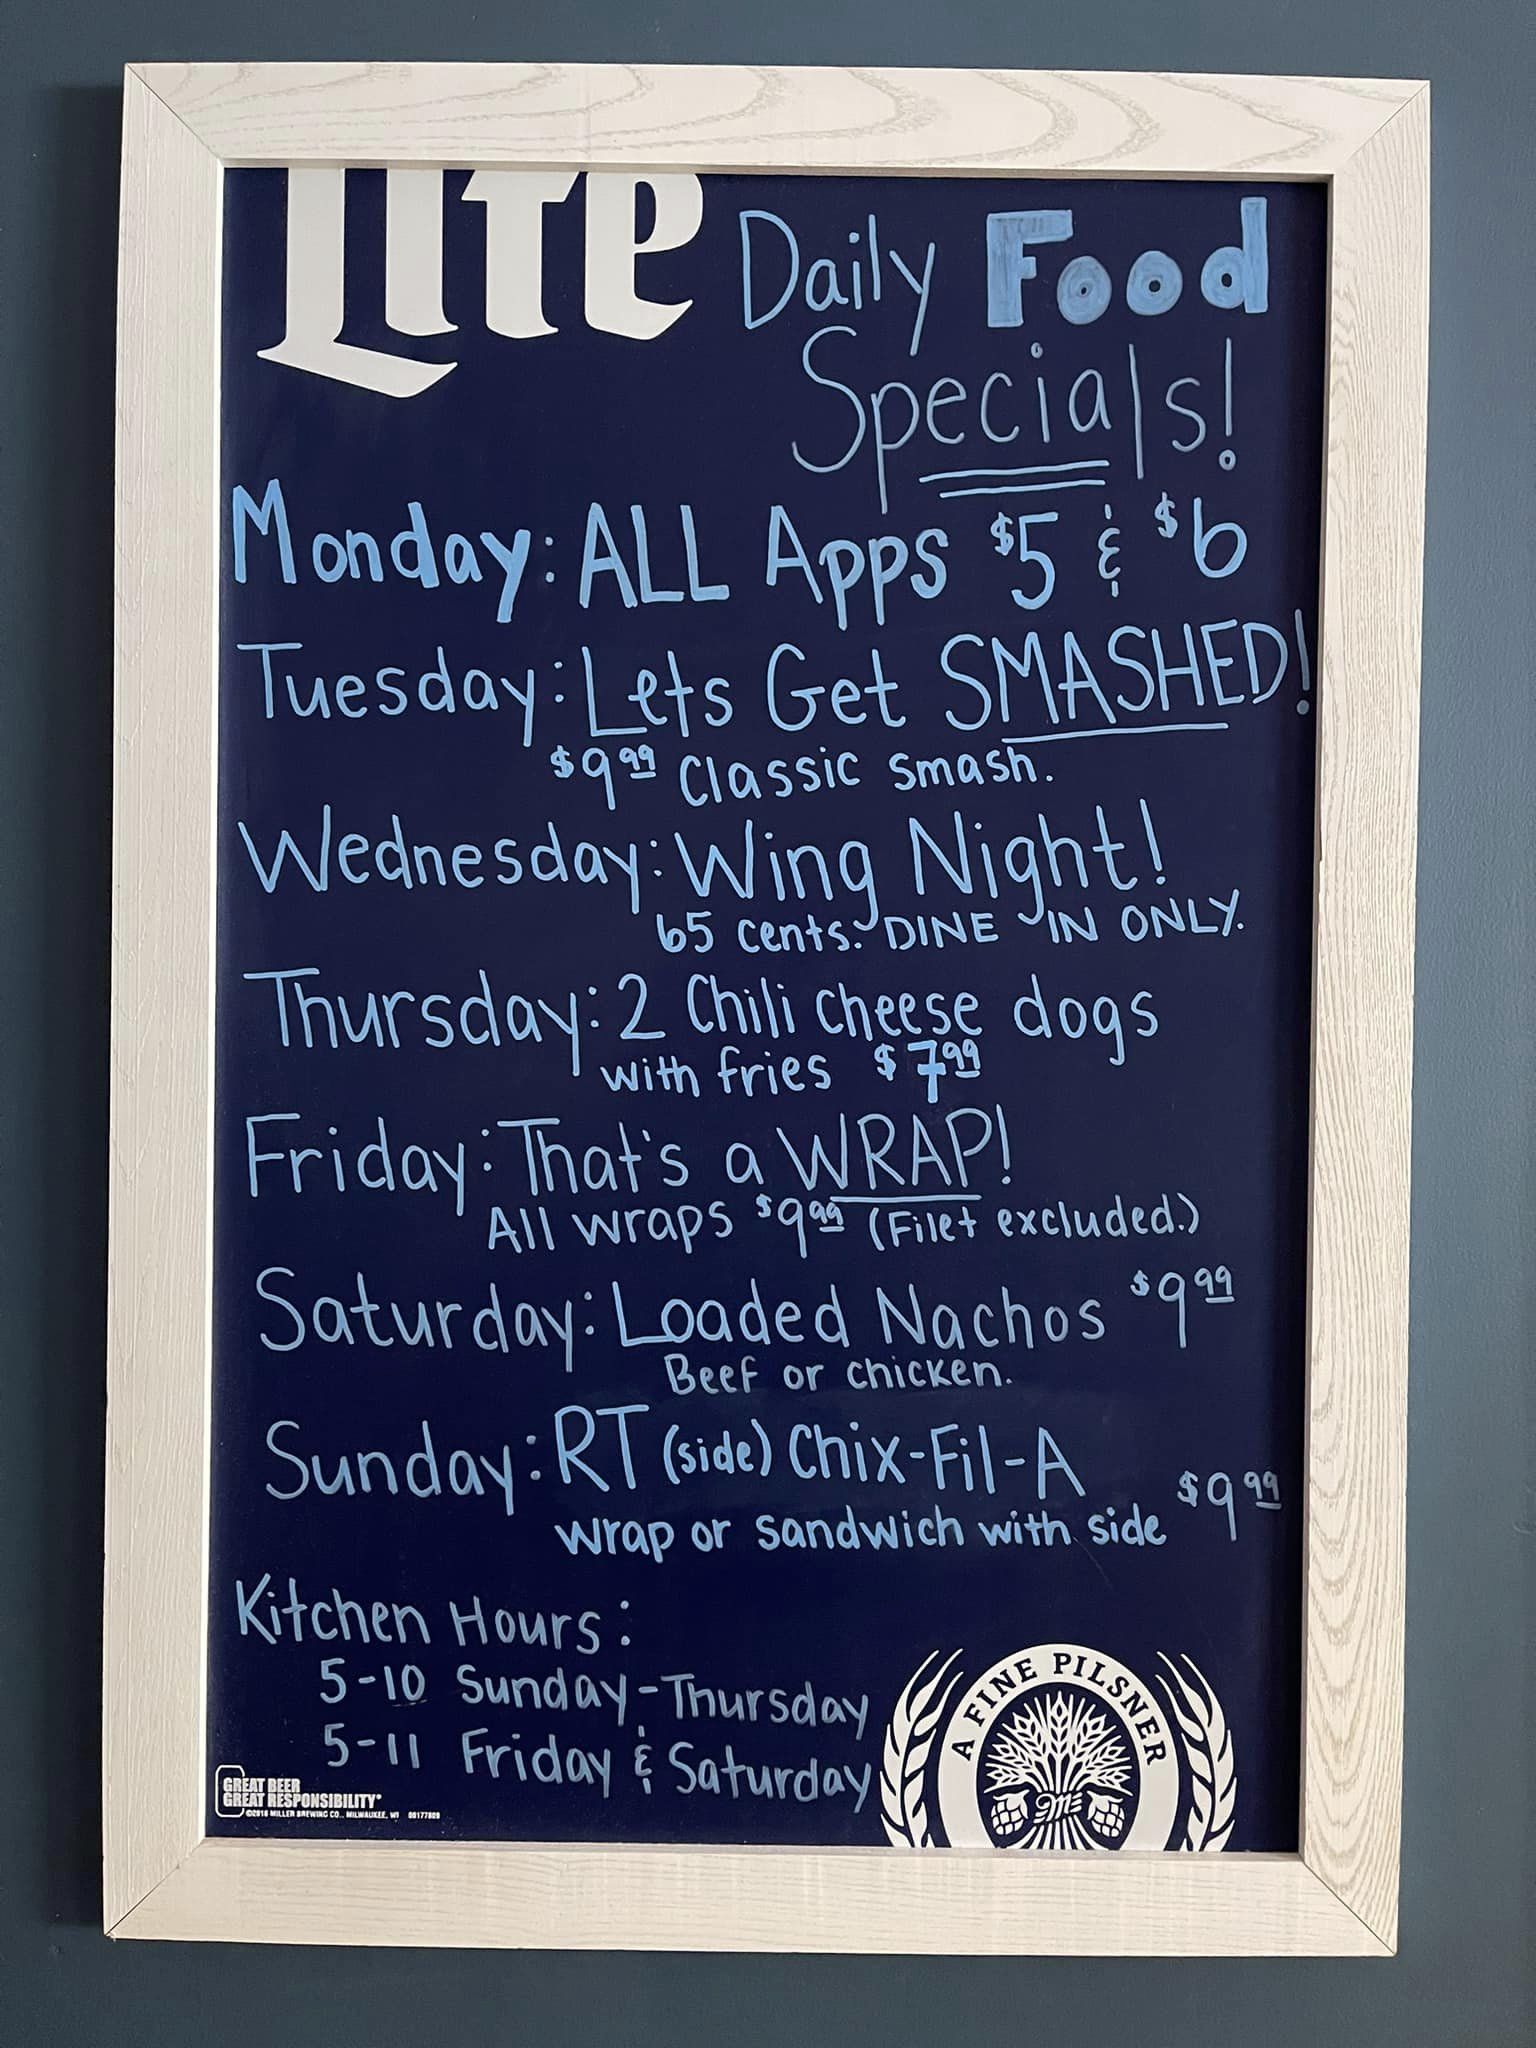 Lite
Daily Food
Specials!
Monday: ALL Apps $5 & $6
Tuesday: Lets Get SMASHED!
$9.99 Classic smash.
Wednesday: Wing Night!
65 cents. DINE IN ONLY.
Thursday: 2 Chili cheese dogs
with fries $7.99
Friday: That's a WRAP!
All wraps $9.99 (Filet excluded.)
Saturday: Loaded Nachos $9.99
Beef or chicken.
Sunday: RT (side) Chix-Fil-A
wrap or sandwich with side $9.99
Kitchen Hours:
5-10 Sunday-Thursday
5-11 Friday & Saturday
A FINE PILSNER
M
GREAT BEER
GREAT RESPONSIBILITY®
MILLER BREWING CO., MILWAUKEE, WI